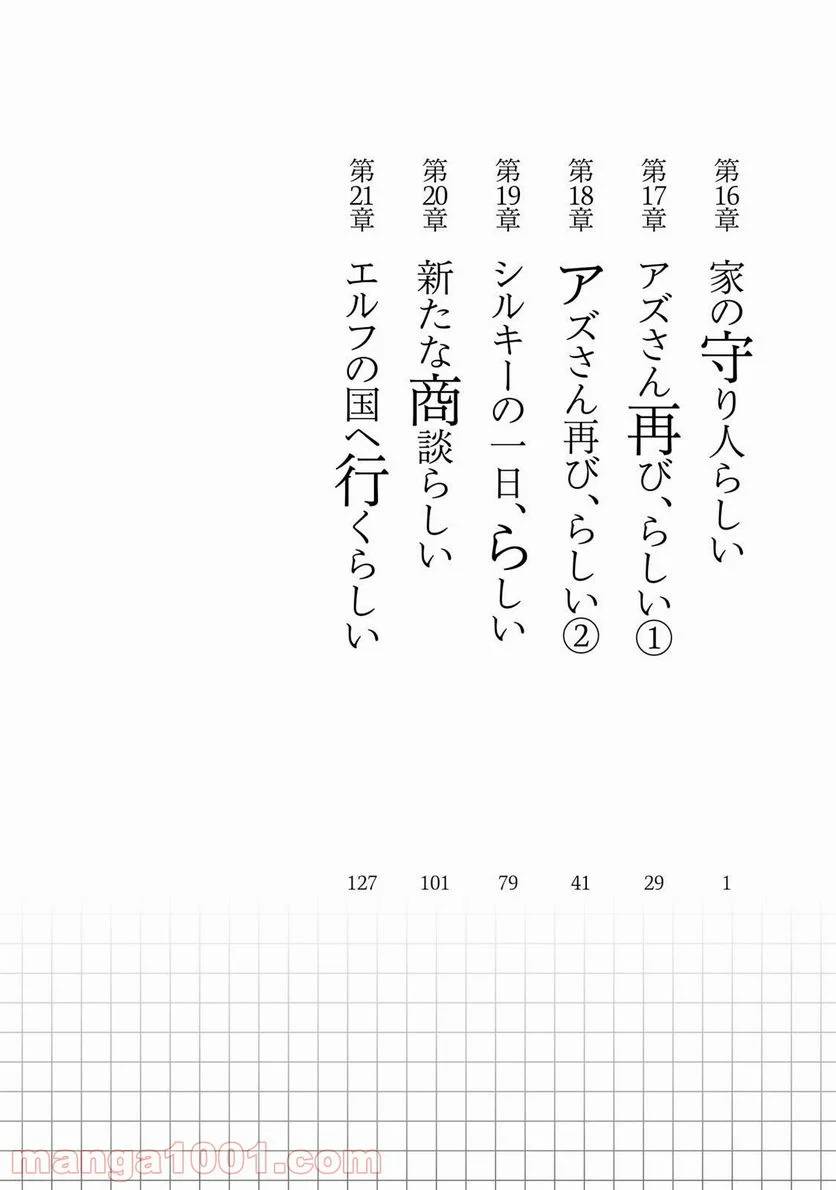 第16章 家の守り人らしい 1
第17章 アズさん再び、らしい① 29
第18章 アズさん再び、らしい② 41
第19章 シルキーの一日、らしい 79
第20章 新たな商談らしい 101
第21章 エルフの国へ行くらしい 127
manga1001.com